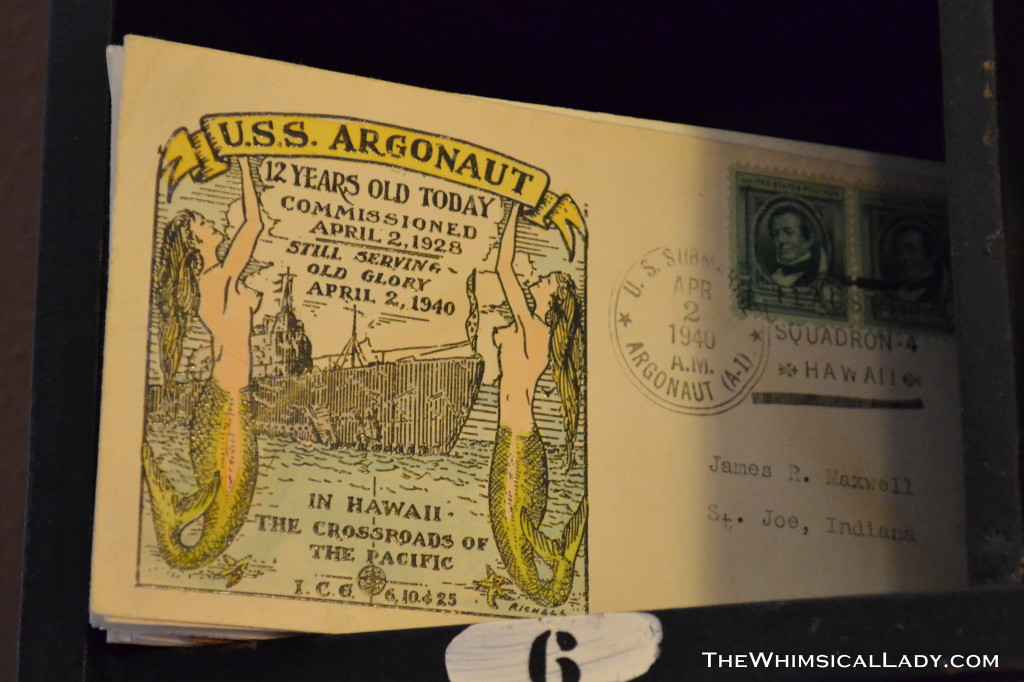 U.S.S. ARGONAUT
12 YEARS OLD TODAY
COMMISSIONED
APRIL 2, 1928
STILL SERVING-
OLD GLORY
APRIL 2, 1940
IN HAWAII-
THE CROSSROADS OF
THE PACIFIC
I.C.G. 6, 10, & 25
UNITED STATES POSTAGE
U.S. SUBM
APR
2
1940
A.M.
ARGONAUT (A-1)
SQUADRON-4
HAWAII
James R. Maxwell
St. Joe, Indiana
6
THEWHIMSICALLADY.COM